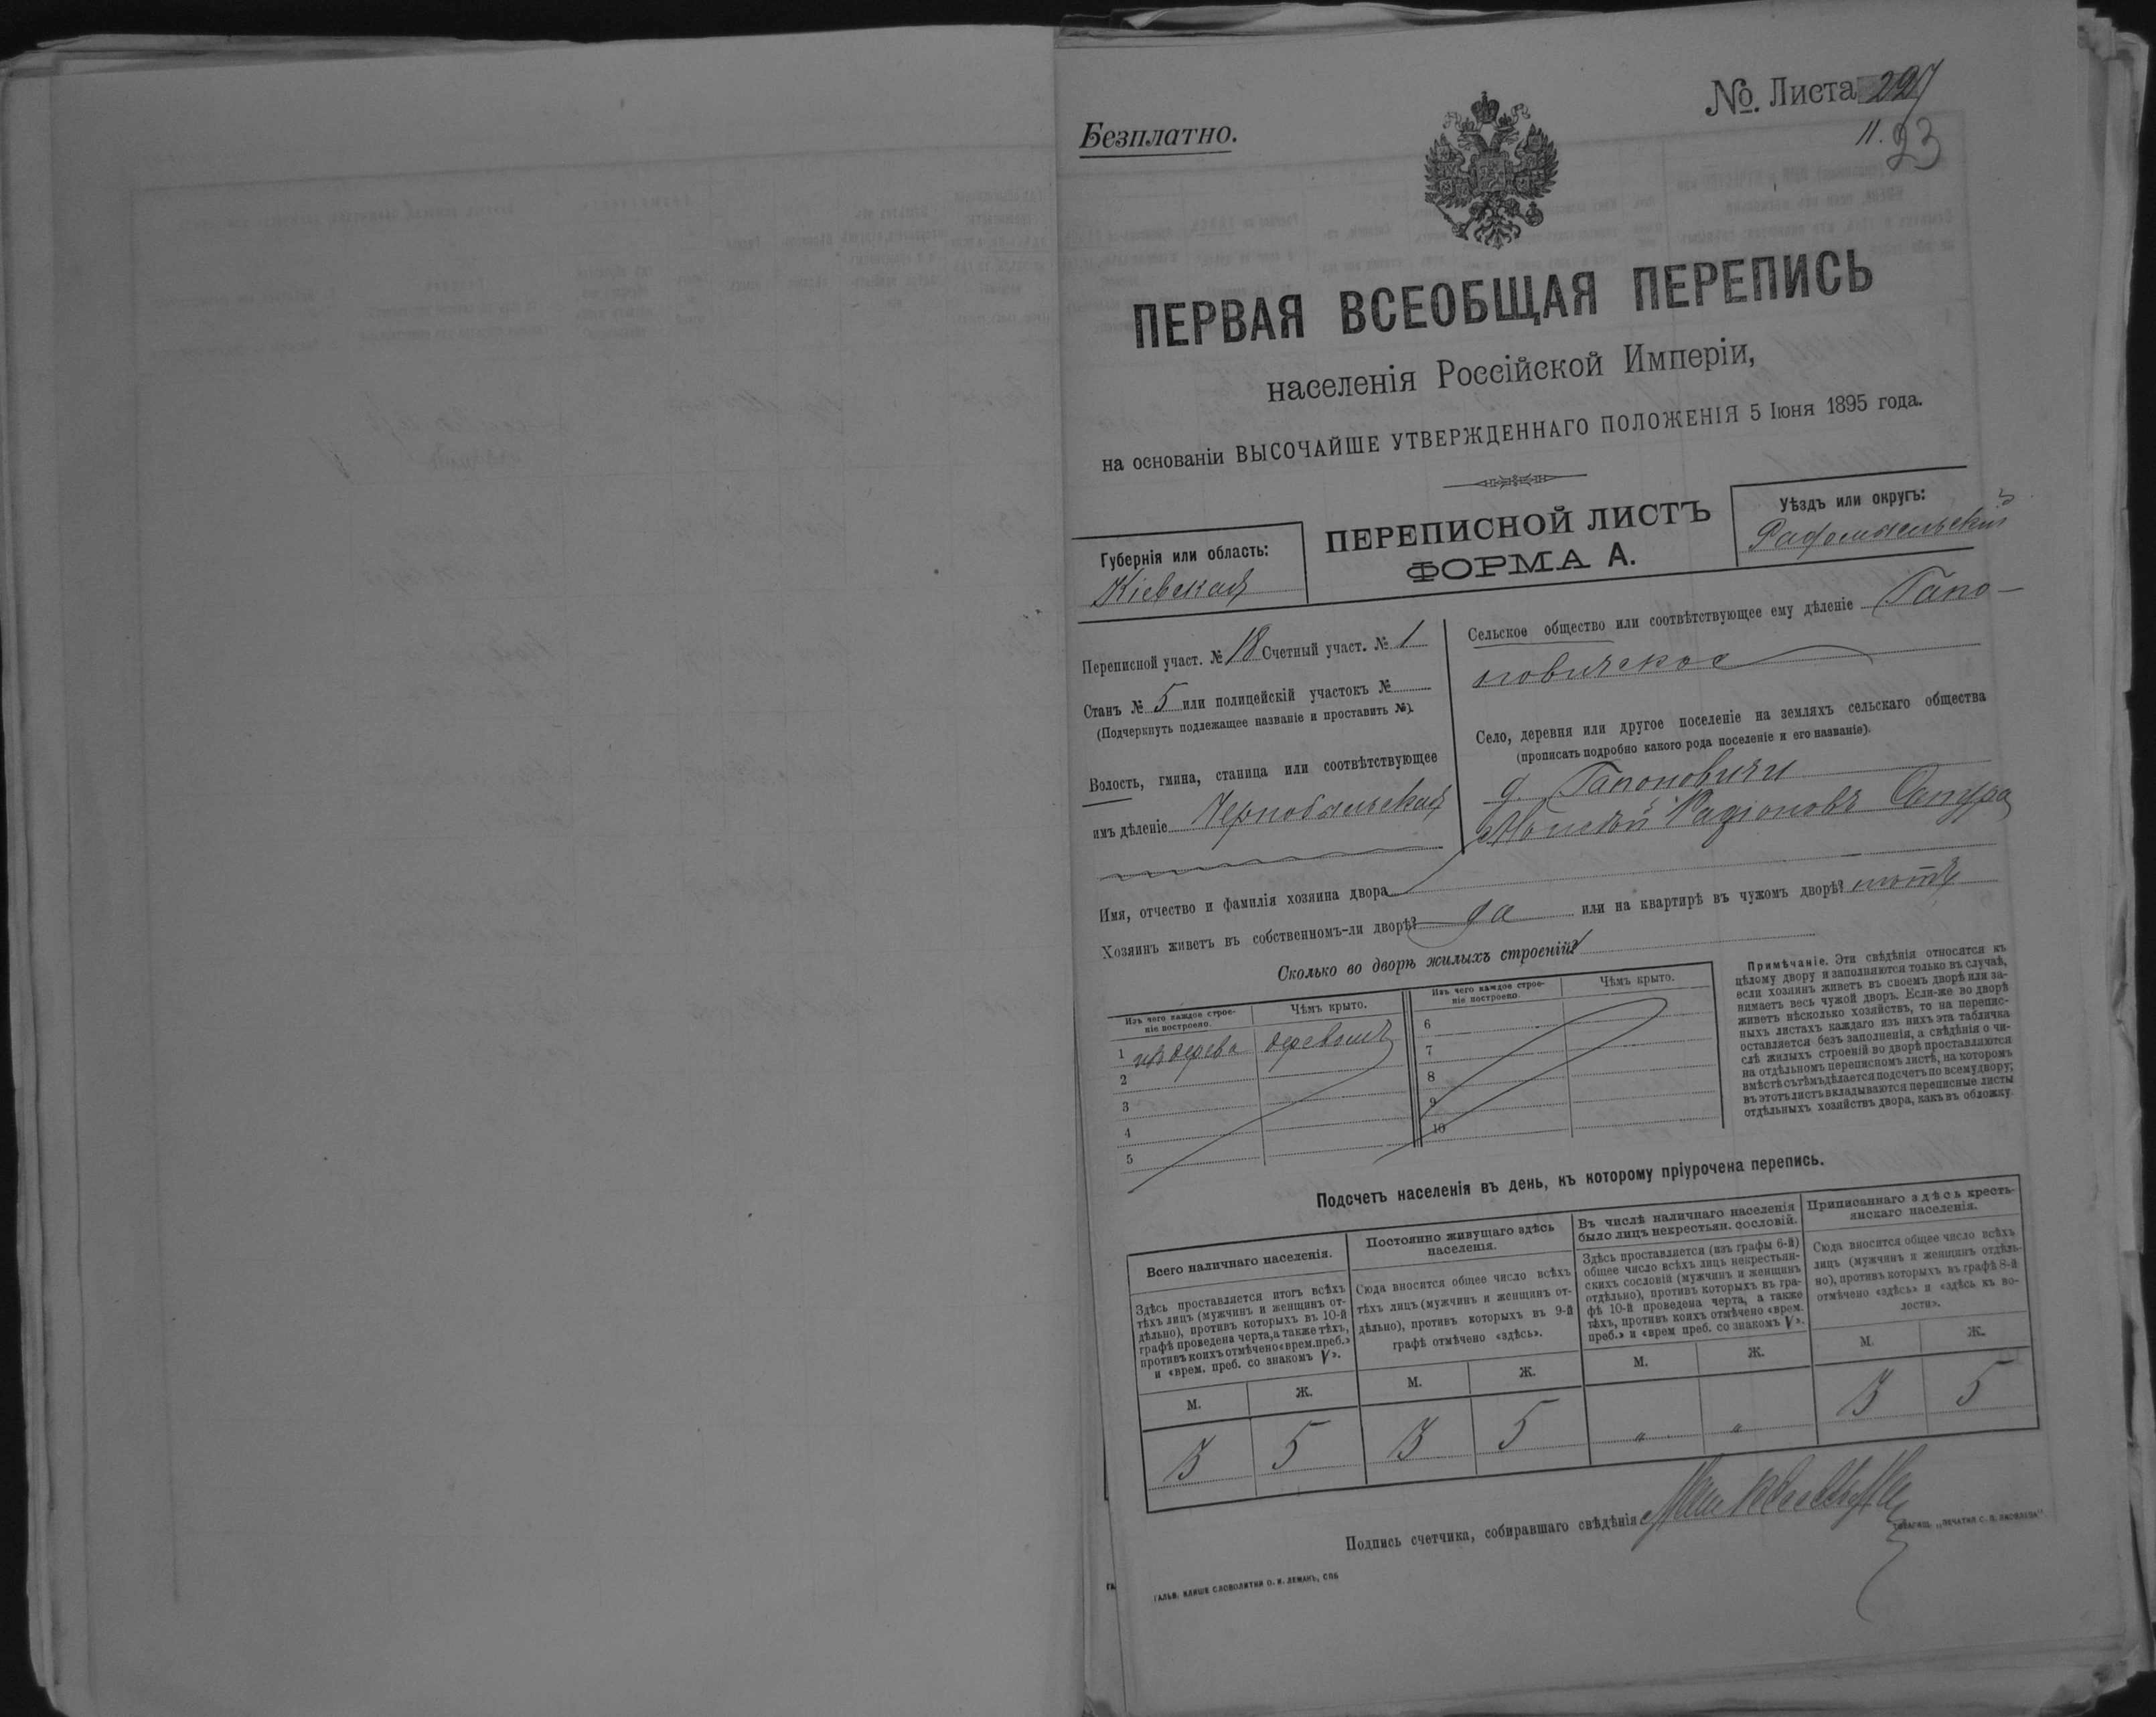 Безплатно.
№ Листа 227
11. 23
ПЕРВАЯ ВСЕОБЩАЯ ПЕРЕПИСЬ
населенія Россійской Имперіи,
на основаніи ВЫСОЧАЙШЕ УТВЕРЖДЕННАГО ПОЛОЖЕНІЯ 5 Іюня 1895 года.
Губернія или область:
Кіевская
ПЕРЕПИСНОЙ ЛИСТЪ
ФОРМА А.
Уѣздъ или округъ:
Радомысльскій
Переписной участ. № 18 Счетный участ. № 1
Станъ № 5 или полицейскій участокъ №
(Подчеркнуть подлежащее названіе и проставить №).
Волость, гмина, станица или соотвѣтствующее
имъ дѣленіе Чернобыльская
Сельское общество или соотвѣтствующее ему дѣленіе Гапо-
новичское
Село, деревня или другое поселеніе на земляхъ сельскаго общества
(прописать подробно какого рода поселеніе и его названіе).
д. Гапоновичи
Имя, отчество и фамилія хозяина двора Мойсей Радіоновъ Сапура
Хозяинъ живетъ въ собственномъ-ли дворѣ? да или на квартирѣ въ чужомъ дворѣ? нѣтъ
Сколько во дворѣ жилыхъ строеній? 1
Изъ чего каждое строе-
ніе построено.
Чѣмъ крыто.
Изъ чего каждое строе-
ніе построено.
Чѣмъ крыто.
1 изъ дерева деревомъ
2
3
4
5
6
7
8
9
10
Примѣчаніе. Эти свѣдѣнія относятся къ
цѣлому двору и заполняются только въ случаѣ,
если хозяинъ живетъ въ своемъ дворѣ или за-
нимаетъ весь чужой дворъ. Если-же во дворѣ
живетъ нѣсколько хозяйствъ, то на перепис-
ныхъ листахъ каждаго изъ нихъ эта табличка
оставляется безъ заполненія, а свѣдѣнія о чи-
слѣ жилыхъ строеній во дворѣ проставляются
на отдѣльномъ переписномъ листѣ, на которомъ
вмѣстѣ съ тѣмъ дѣлается подсчетъ по всему двору;
въ этотъ листъ вкладываются переписные листы
отдѣльныхъ хозяйствъ двора, какъ въ обложку.
Подсчетъ населенія въ день, къ которому пріурочена перепись.
Всего наличнаго населенія.
Здѣсь проставляется итогъ всѣхъ
тѣхъ лицъ (мужчинъ и женщинъ от-
дѣльно), противъ которыхъ въ 10-й
графѣ проведена черта, а также тѣхъ,
противъ коихъ отмѣчено «врем. преб.»
и «врем. преб. со знакомъ V».
Постоянно живущаго здѣсь
населенія.
Сюда вносится общее число всѣхъ
тѣхъ лицъ (мужчинъ и женщинъ от-
дѣльно), противъ которыхъ въ 9-й
графѣ отмѣчено «здѣсь».
Въ числѣ наличнаго населенія
было лицъ некрестьян. сословій.
Здѣсь проставляется (изъ графы 6-й)
общее число всѣхъ лицъ некрестьян-
скихъ сословій (мужчинъ и женщинъ
отдѣльно), противъ которыхъ въ гра-
фѣ 10-й проведена черта, а также
тѣхъ, противъ коихъ отмѣчено «врем.
преб.» и «врем преб. со знакомъ V».
Приписаннаго здѣсь кресть-
янскаго населенія.
Сюда вносится общее число всѣхъ
лицъ (мужчинъ и женщинъ отдѣль-
но), противъ которыхъ въ графѣ 8-й
отмѣчено «здѣсь» и «здѣсь къ во-
лости».
М. Ж. М. Ж. М. Ж. М. Ж.
3 5 3 5 " " 3 5
Подпись счетчика, собиравшаго свѣдѣнія
ГАЛЬВ. КЛИШЕ СЛОВОЛИТНИ О. И. ЛЕМАНЪ, СПБ
ТОВАРИЩ. „ПЕЧАТНЯ С. П. ЯКОВЛЕВА"